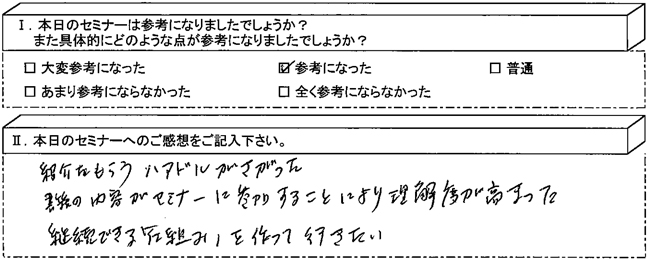 Ⅰ．本日のセミナーは参考になりましたでしょうか？
また具体的にどのような点が参考になりましたでしょうか？
□ 大変参考になった ☑ 参考になった □ 普通
□ あまり参考にならなかった □ 全く参考にならなかった
Ⅱ．本日のセミナーへのご感想をご記入下さい。
紹介をもらう ハードルがさがった
書籍の内容がセミナーに参加することにより理解度が高まった
継続できる「仕組み」を作って行きたい